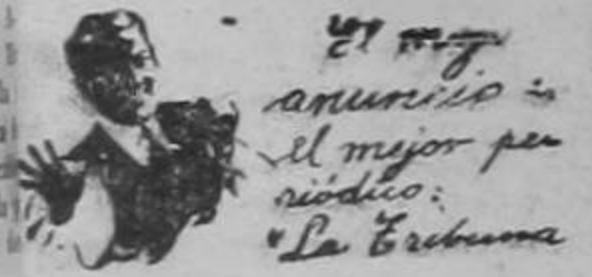 El
anuncio
el mejor pe
riódico:
"La Tribuna